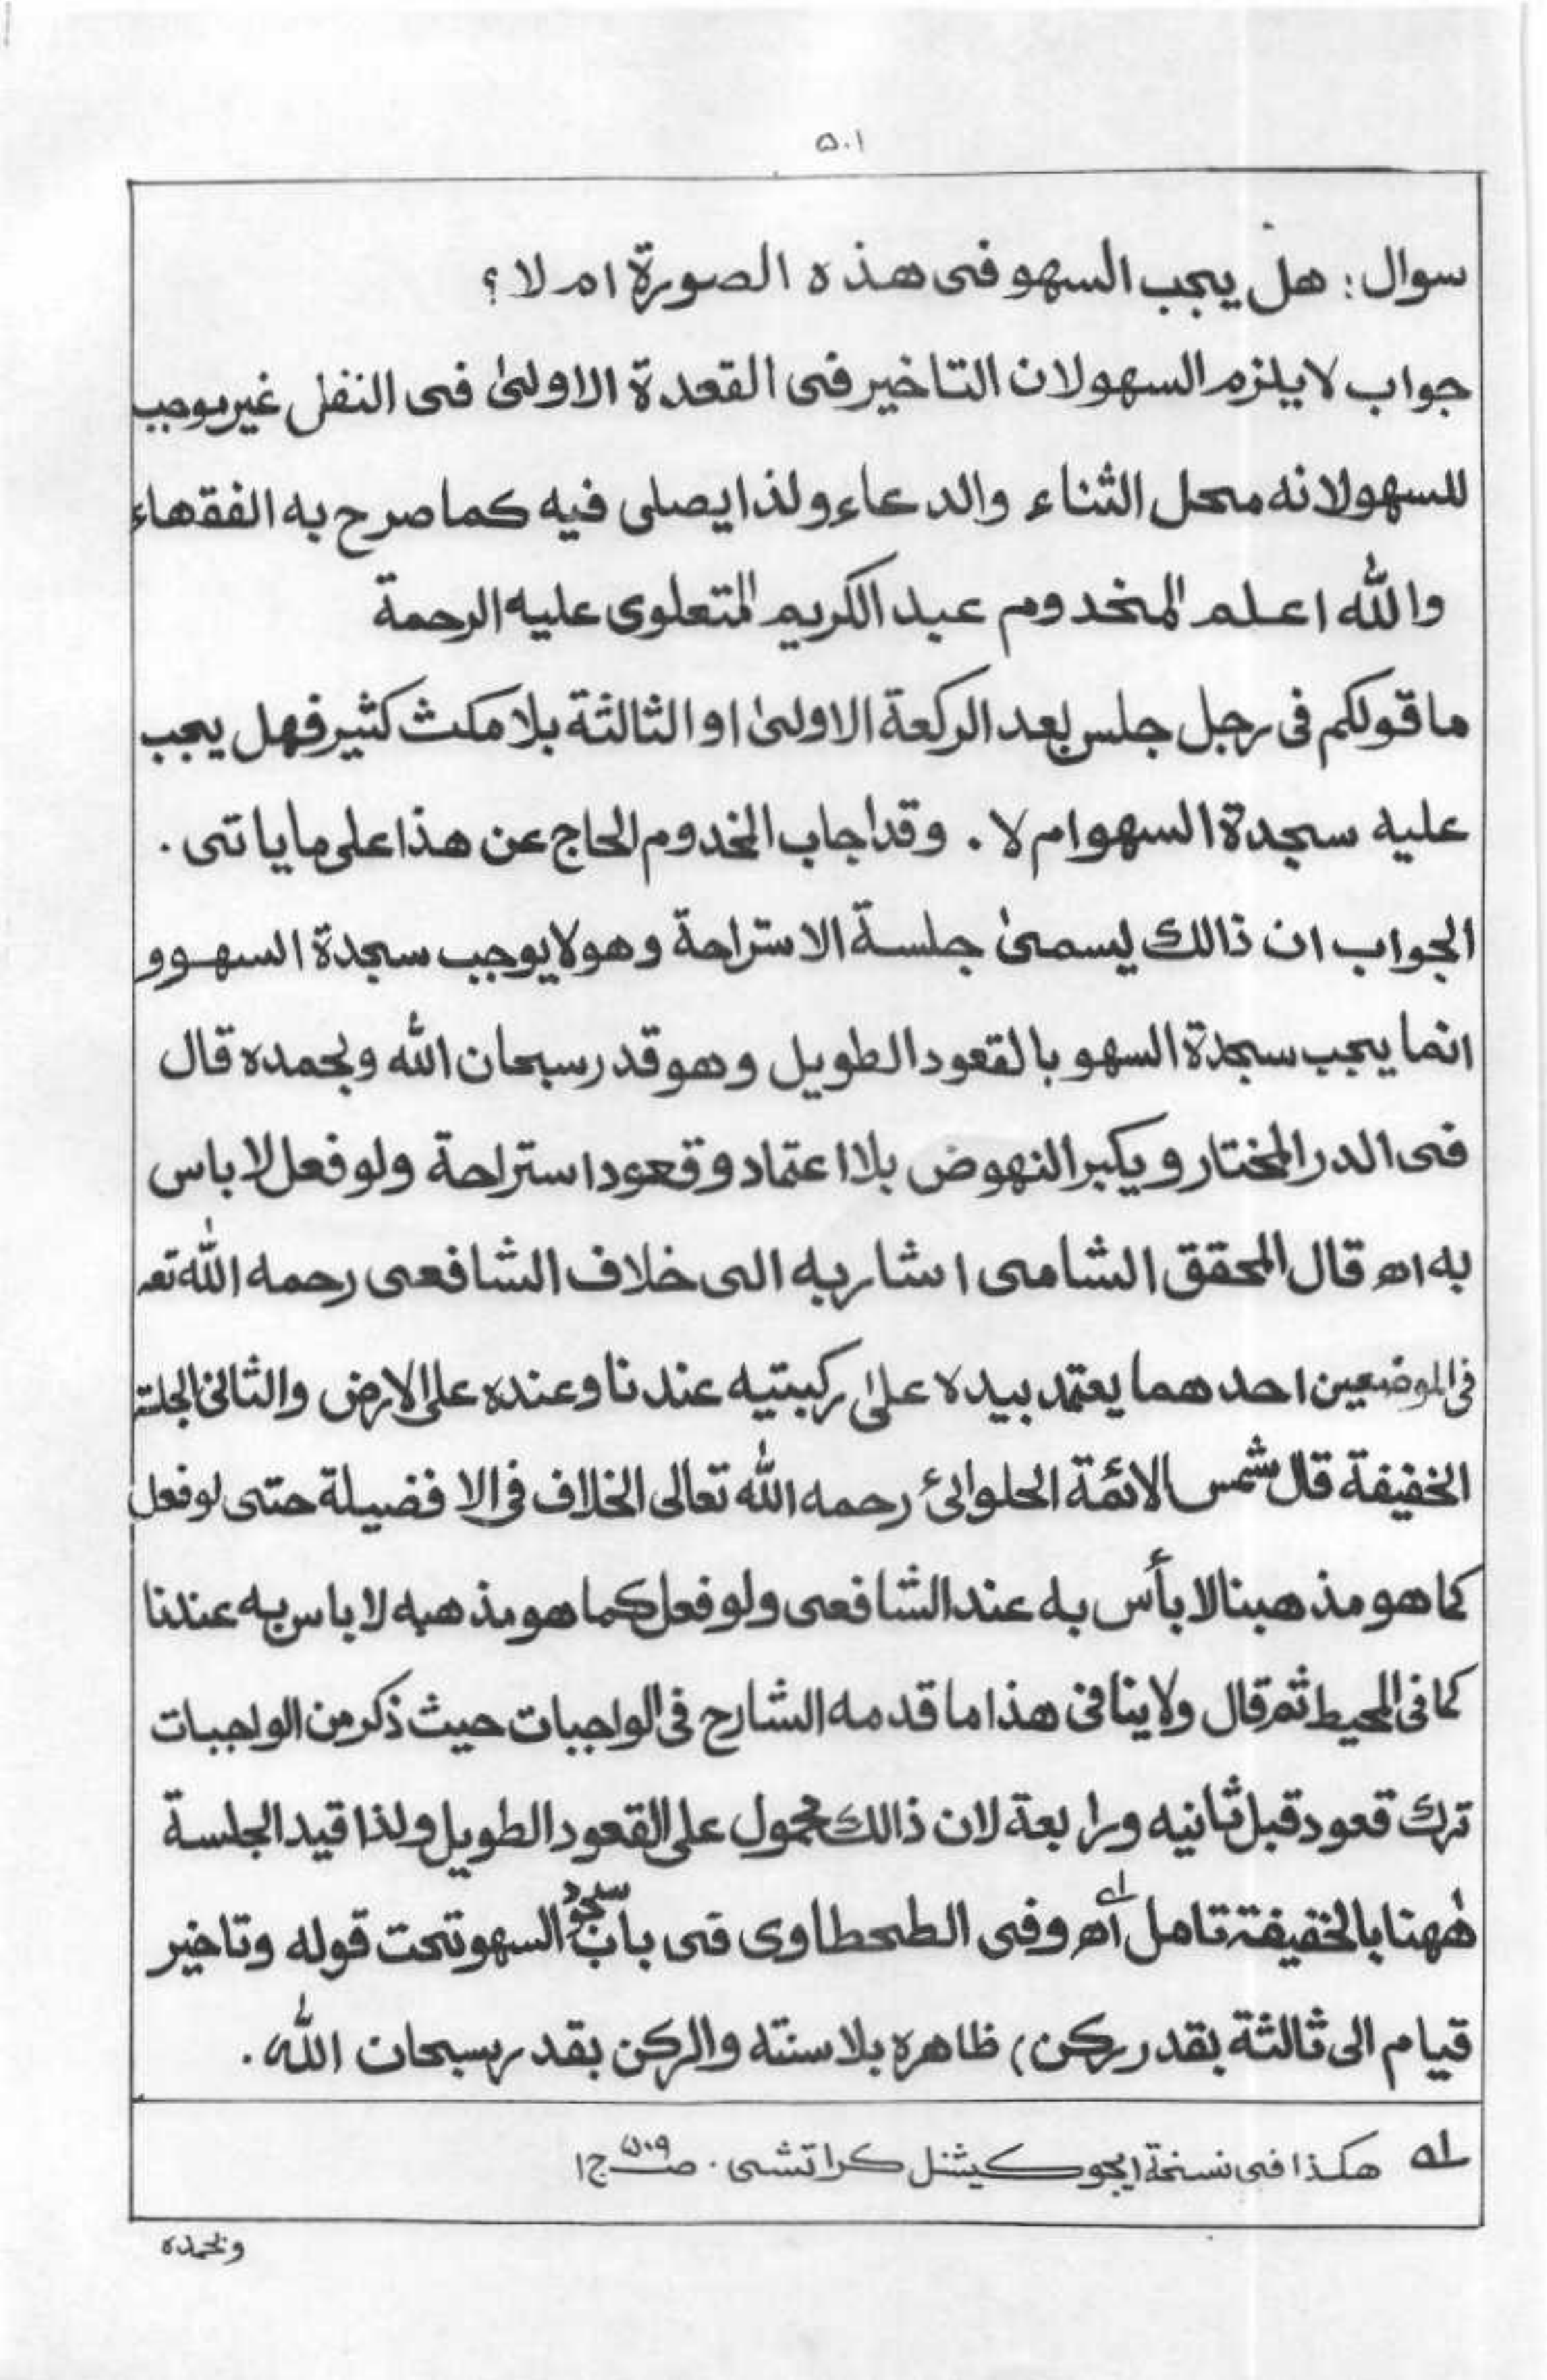 ۵۰۱
سوال: هل يجب السهو فى هذه الصورة ام لا؟
جواب لا يلزم السهو لان التاخير فى القعدة الاولىٰ فى النفل غير موجب
للسهو لانه محل الثناء والدعاء ولذا يصلى فيه كما صرح به الفقهاء
والله اعلم المخدوم عبد الكريم المتعلوى عليه الرحمة
ما قولكم فى رجل جلس بعد الركعة الاولىٰ او الثالثة بلا مكث كثير فهل يجب
عليه سجدة السهو ام لا. وقد اجاب المخدوم الحاج عن هذا على ما ياتى.
الجواب ان ذالك ليسمىٰ جلسة الاستراحة وهو لا يوجب سجدة السهو و
انما يجب سجدة السهو بالقعود الطويل وهو قدر سبحان الله وبحمده قال
فى الدر المختار ويكبر النهوض بلا اعتماد وقعود استراحة ولو فعل لا باس
به اھ قال المحقق الشامى اشار به الى خلاف الشافعى رحمه الله تعہ
فى الموضعين احدهما يعتمد بيده علىٰ ركبتيه عندنا وعنده على الارض والثانى الجلسة
الخفيفة قال شمس الائمة الحلوائ رحمه الله تعالى الخلاف فى الافضيلة حتى لو فعل
كما هو مذهبنا لا بأس به عند الشافعى ولو فعل كما هو مذهبه لا باس به عندنا
كما فى المحيط ثم قال ولا ينافى هذا ما قدمه الشارح فى الواجبات حيث ذكر من الواجبات
ترك قعود قبل ثانيه ورابعة لان ذالك محمول على القعود الطويل ولذا قيد الجلسة
هٰهنا بالخفيفة تامل اھ وفى الطحطاوى فى باب سجود السهو تحت قوله وتاخير
قيام الى ثالثة بقدر ركن) ظاهره بلا سنته والركن بقدر سبحان الله.
لہ هكذا فى نسخة ايجوكيشنل كراتشى. صـ۵۰۹ ج۱
وبحمده